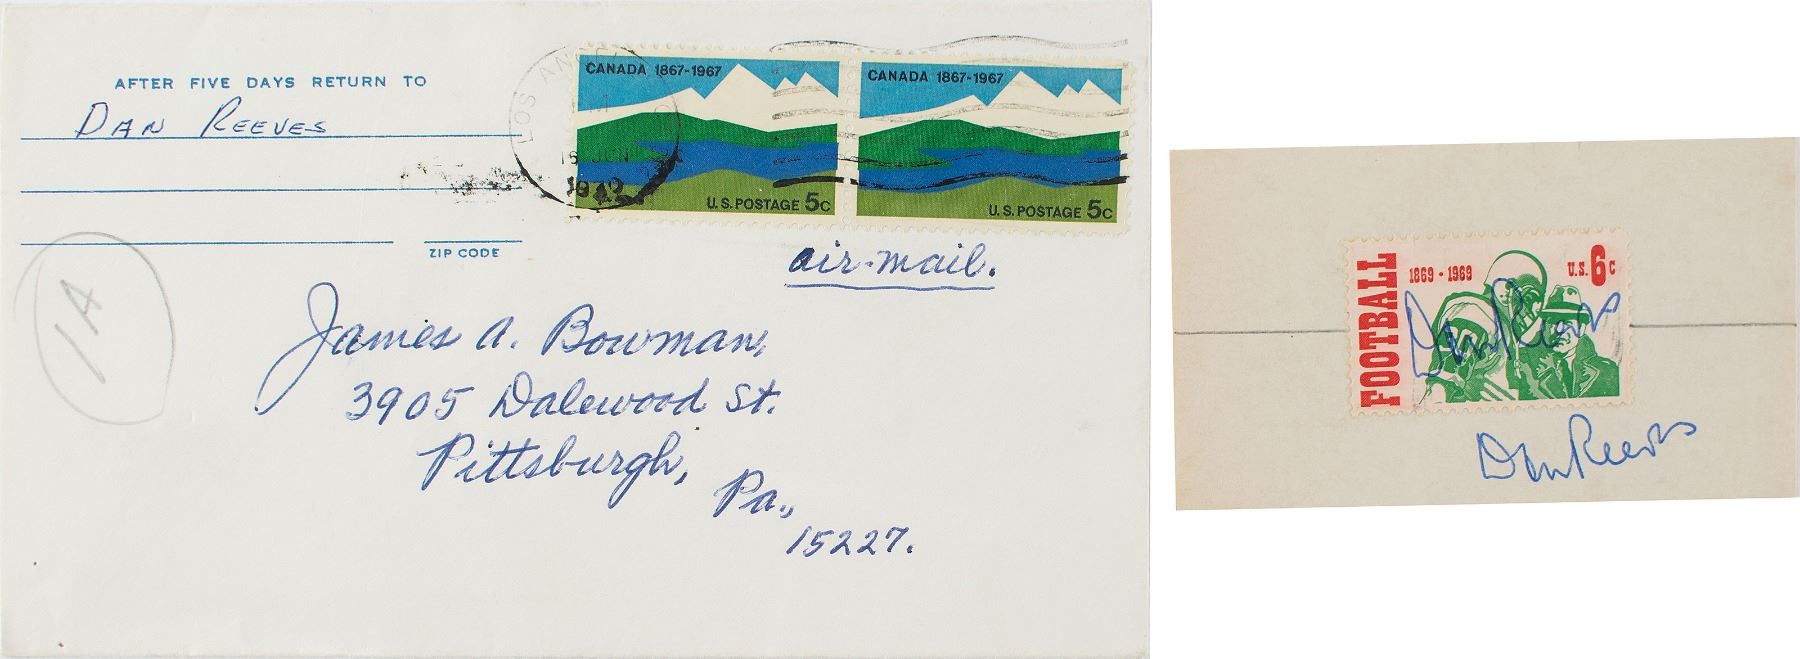 AFTER FIVE DAYS RETURN TO
DAN REEVES
ZIP CODE
LOS
16 JUN
CANADA 1867-1967
U.S. POSTAGE 5c
CANADA 1867-1967
U.S. POSTAGE 5c
air-mail.
1A
James A. Bowman,
3905 Dalewood St.
Pittsburgh,
Pa.,
15227.
FOOTBALL
1869 • 1969
U.S. 6c
Dan Reeves
Dan Reeves